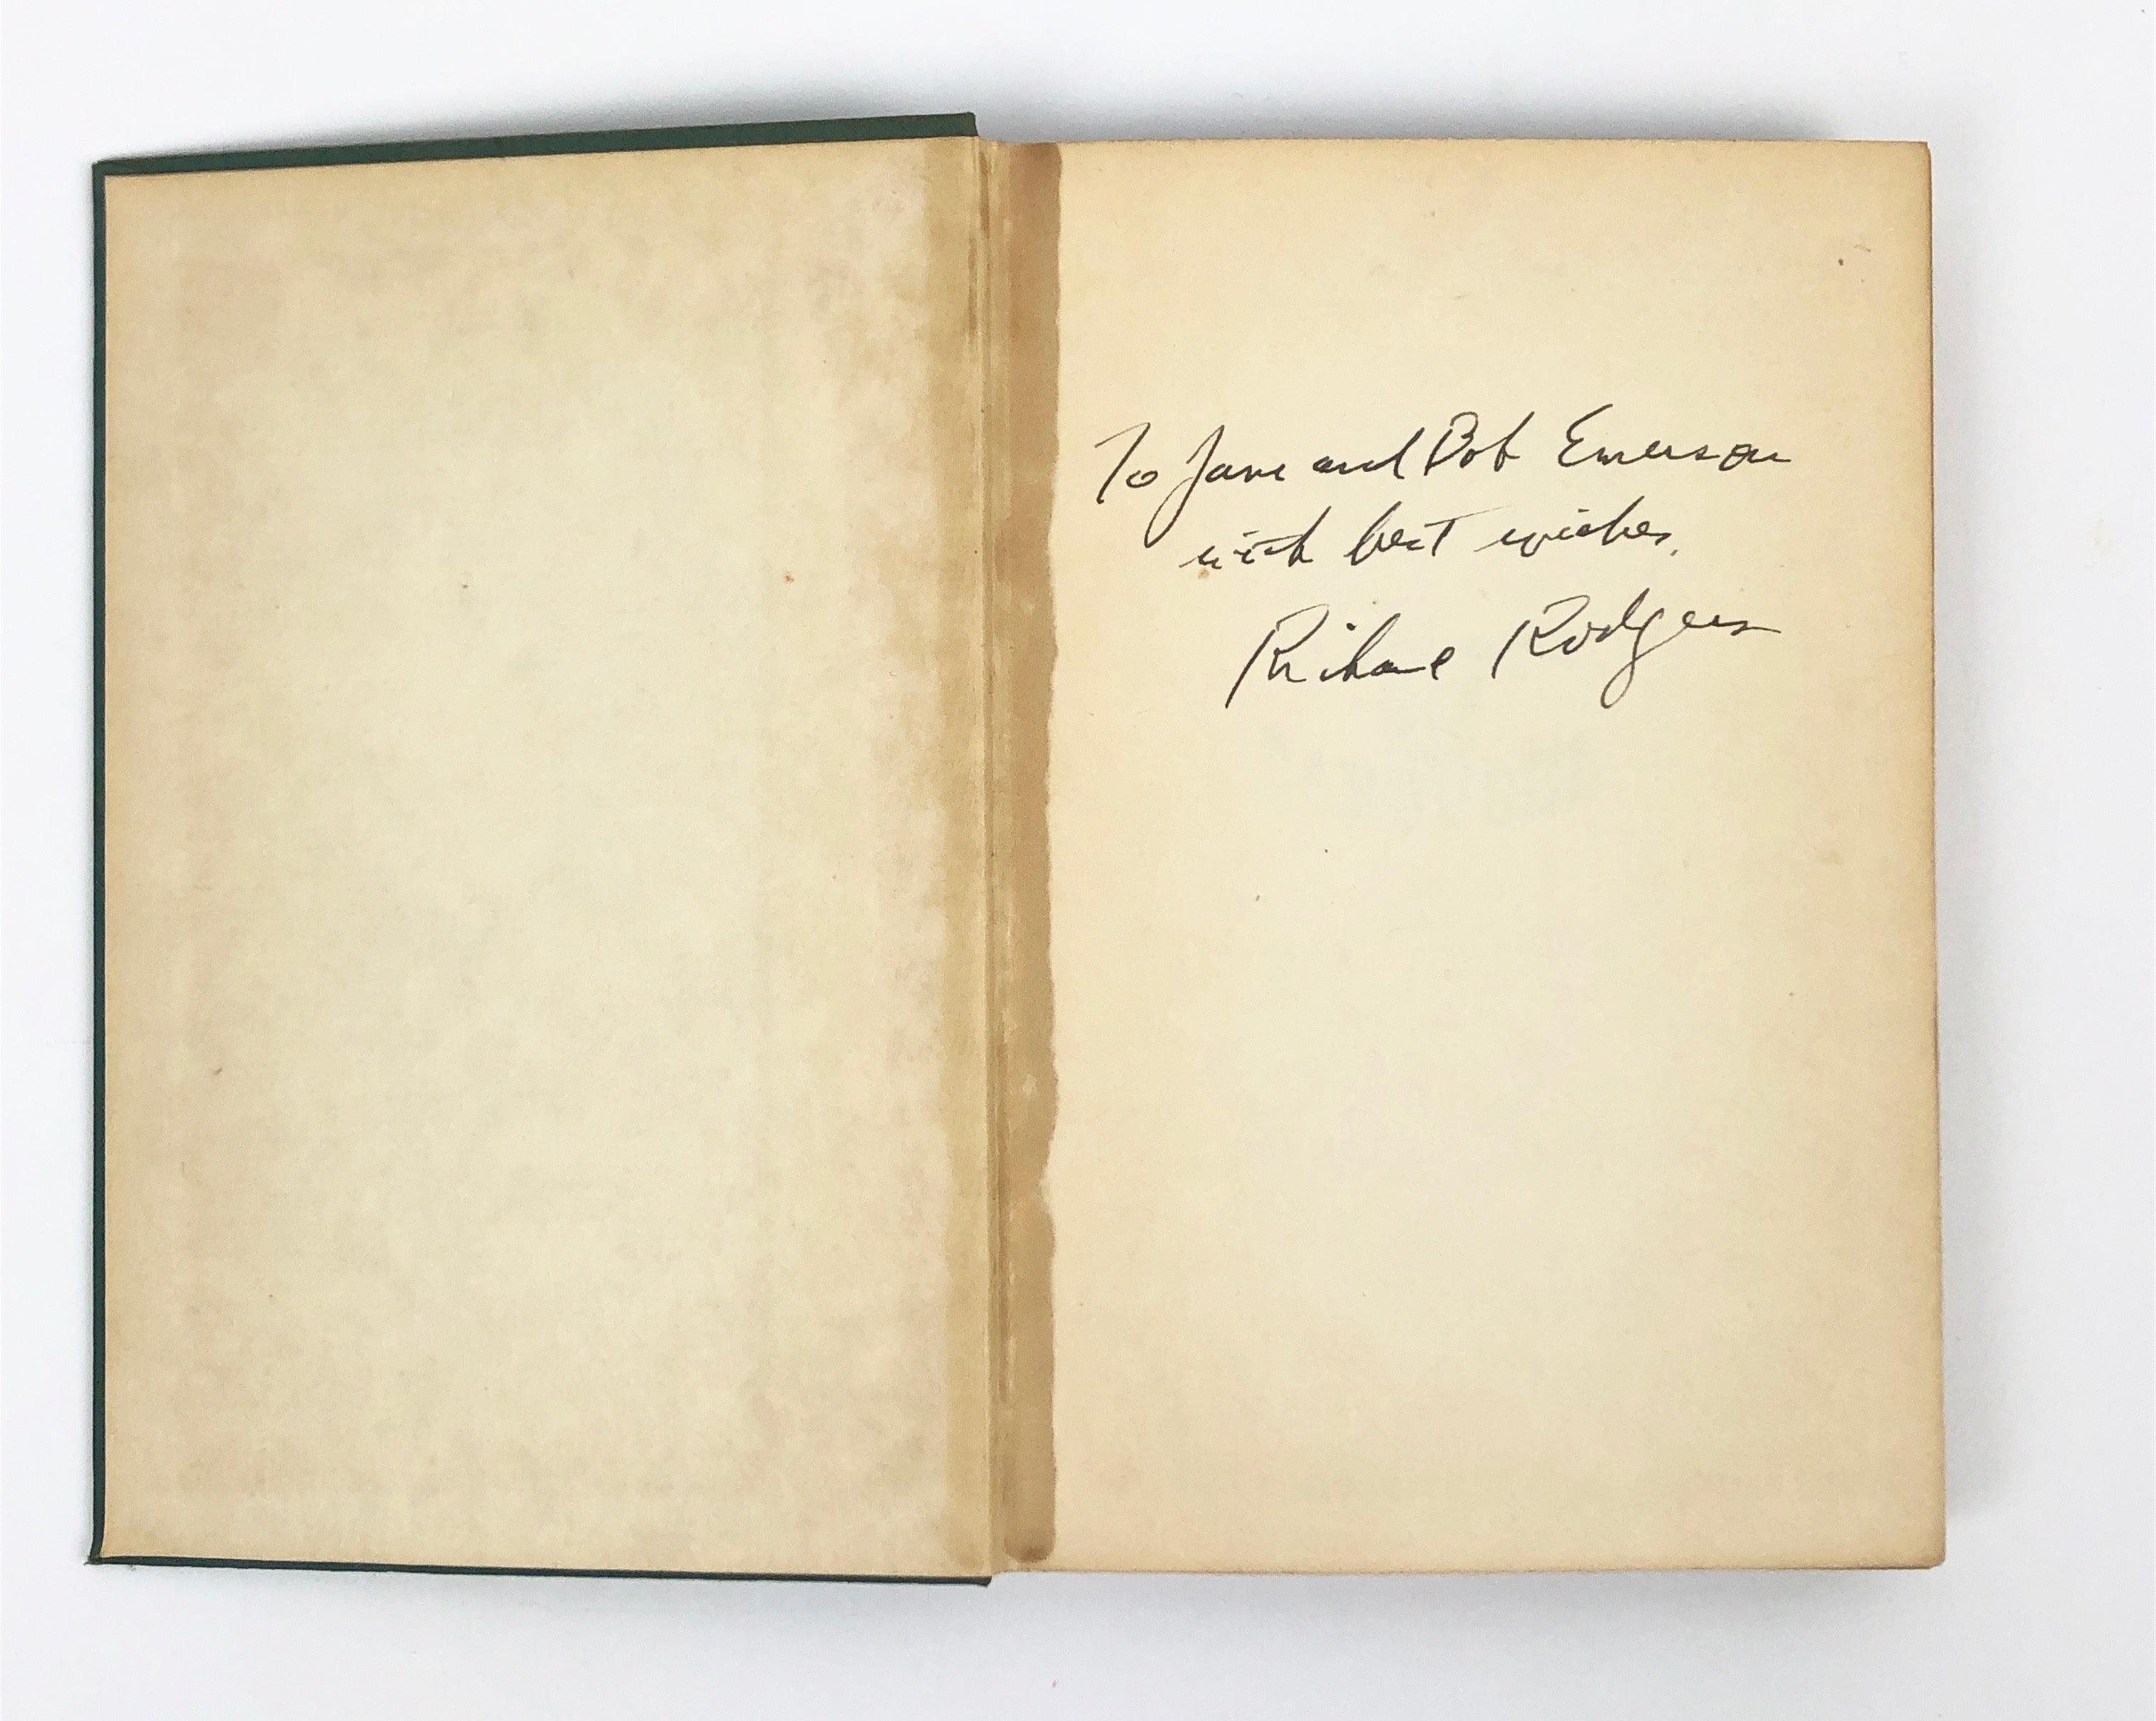 To Jane and Bob Emerson
with best wishes,
Richard Rodgers